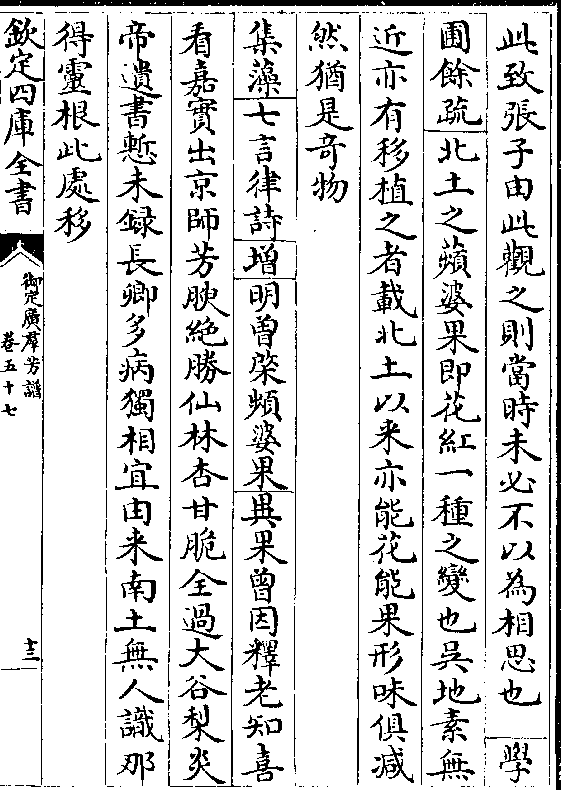 此致張子由此觀之則當時未必不以為相思也　學
圃餘疏北土之蘋婆果即花紅一種之變也吳地素無
近亦有移植之者載北土以来亦能花能果形味俱减
然猶是竒物
集藻七言律詩增明曾棨頻婆果異果曾因釋老知喜
看嘉實出京師芳腴絶勝仙林杏甘脆全過大谷梨炎
帝遺書慙未録長卿多病獨相宜由来南土無人識那
得靈根此處移
欽定四庫全書
御定廣羣芳譜
卷五十七
十三